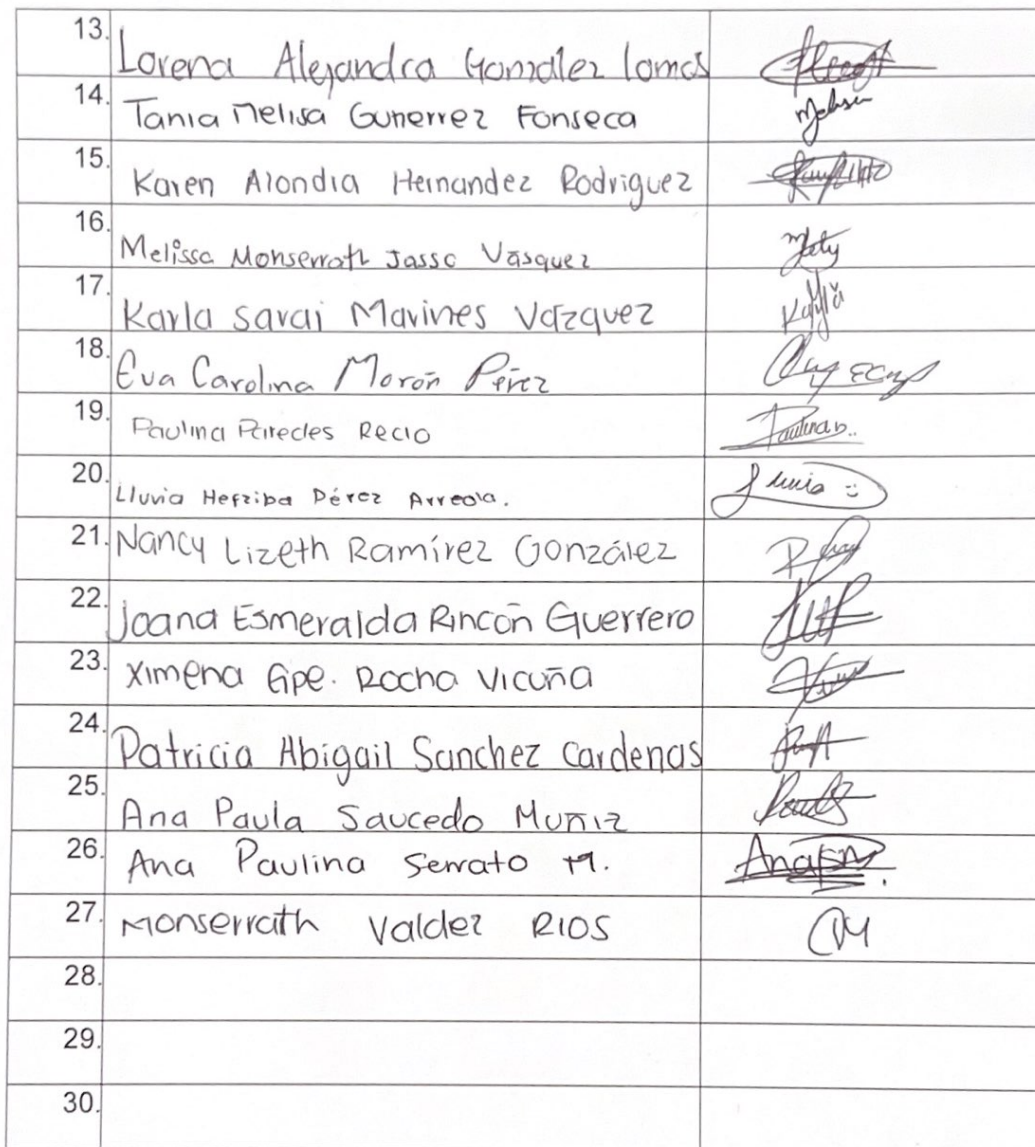 13. Lorena Alejandra González Lomas
14. Tania Melisa Gutierrez Fonseca Melissa
15. Karen Alondra Hernandez Rodriguez
16. Melissa Monserrath Jasso Vásquez Mely
17. Karla Sarai Marines Vazquez Karla
18. Eva Carolina Morón Pérez
19. Paulina Paredes Recio Paulina
20. Lluvia Hefziba Pérez Arreola. Lluvia :)
21. Nancy Lizeth Ramírez González
22. Joana Esmeralda Rincón Guerrero
23. Ximena Gpe. Rocha Vicuña
24. Patricia Abigail Sanchez Cardenas
25. Ana Paula Saucedo Muñiz
26. Ana Paulina Serrato M.
27. Monserrath Valdez RIOS
28.
29.
30.